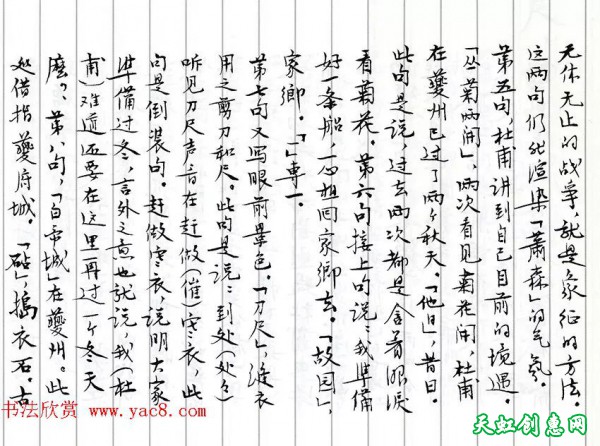 无休无止的战争，就是象征的方法。
这两句仍然渲染「萧森」的气氛。
第五句，杜甫讲到自己目前的境遇。
「丛菊两开」，两次看见菊花开，杜甫
在夔州已过了两个秋天。「他日」，昔日。
此句是说，过去两次都是含着眼泪
看菊花。第六句接上句说：我準備
好一条船，一心想回家乡去。「故园」，
家乡。「一」，専一。
第七句又写眼前景色。「刀尺」，缝衣
用之剪刀和尺。此句是说：到处（处处）
听见刀尺声音在赶做（催）寒衣，此
句是倒装句。赶做寒衣，说明大家
準備过冬，言外之意也就说，我（杜
甫）难道还要在这里再过一个冬天
麽？，第八句，「白帝城」在夔州。此
处借指夔府城。「砧」，搗衣石。古
书法欣赏 www.yac8.com
天虹创意网